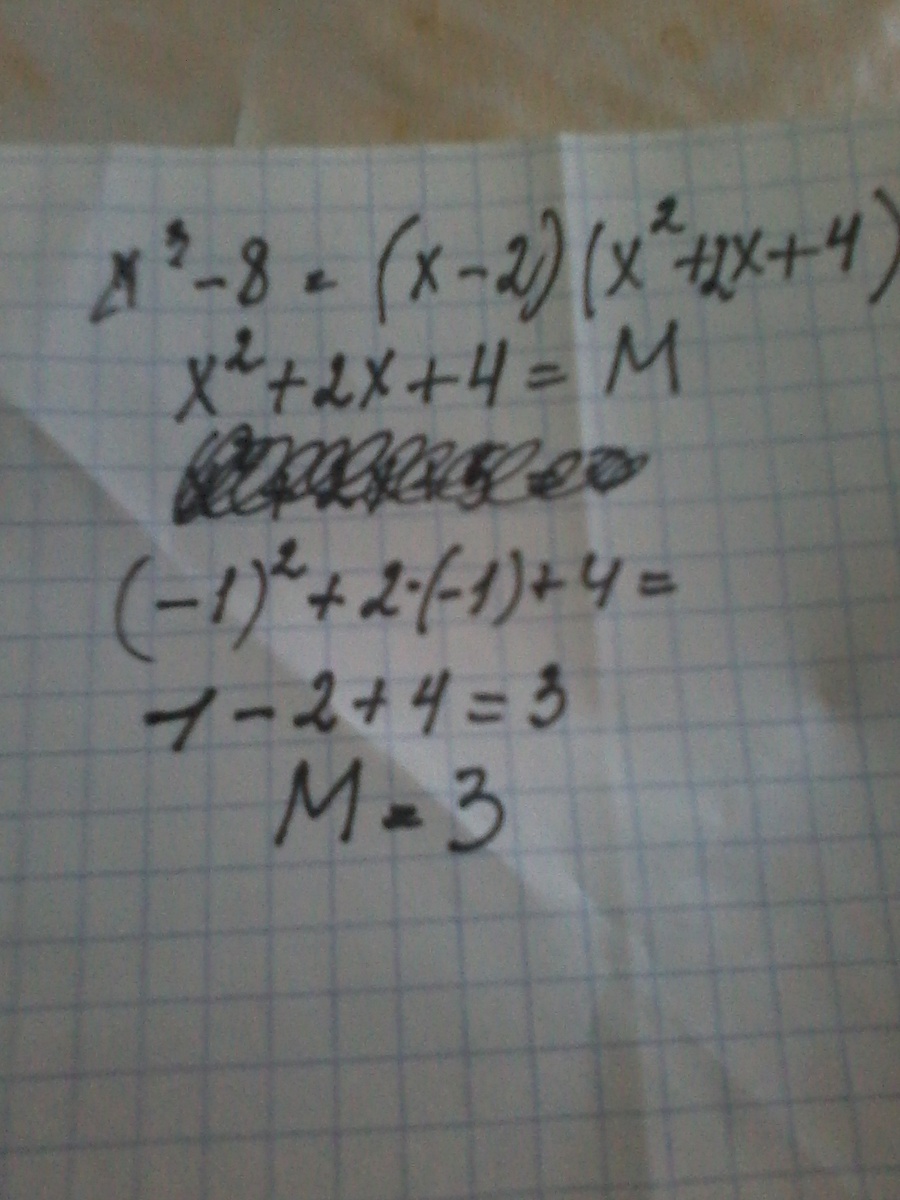 x³ - 8 = (x - 2)(x² + 2x + 4)
x² + 2x + 4 = M
(-1)² + 2·(-1) + 4 =
1 - 2 + 4 = 3
M = 3